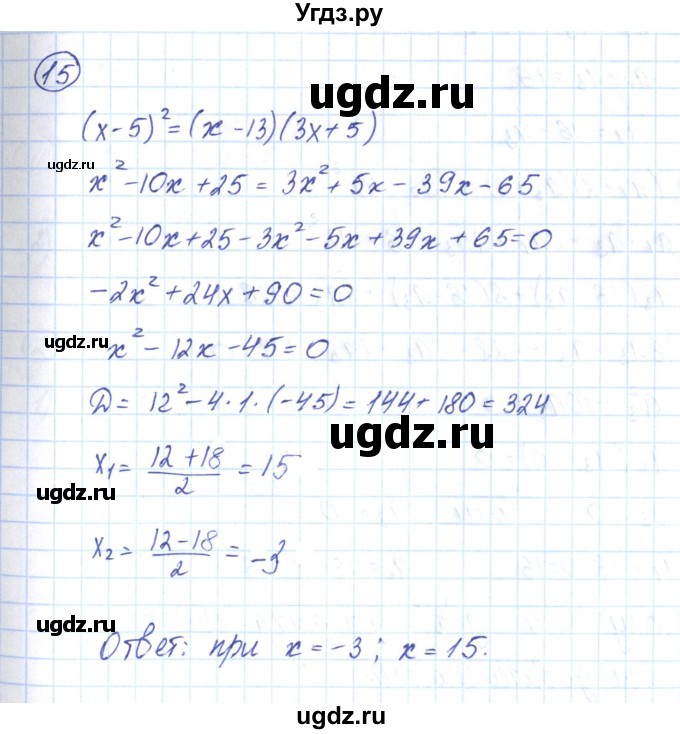 Угдз.ру
15
ugdz.ru
(x-5)² = (x-13)(3x+5)
ugdz.ru
x² - 10x + 25 = 3x² + 5x - 39x - 65
x² - 10x + 25 - 3x² - 5x + 39x + 65 = 0
-2x² + 24x + 90 = 0
ugdz.ru
x² - 12x - 45 = 0
D = 12² - 4·1·(-45) = 144 + 180 = 324
ugdz.ru
x₁ = (12+18)/2 = 15
ugdz.ru
x₂ = (12-18)/2 = -3
ugdz.ru
Ответ: при x = -3; x = 15.
ugdz.ru